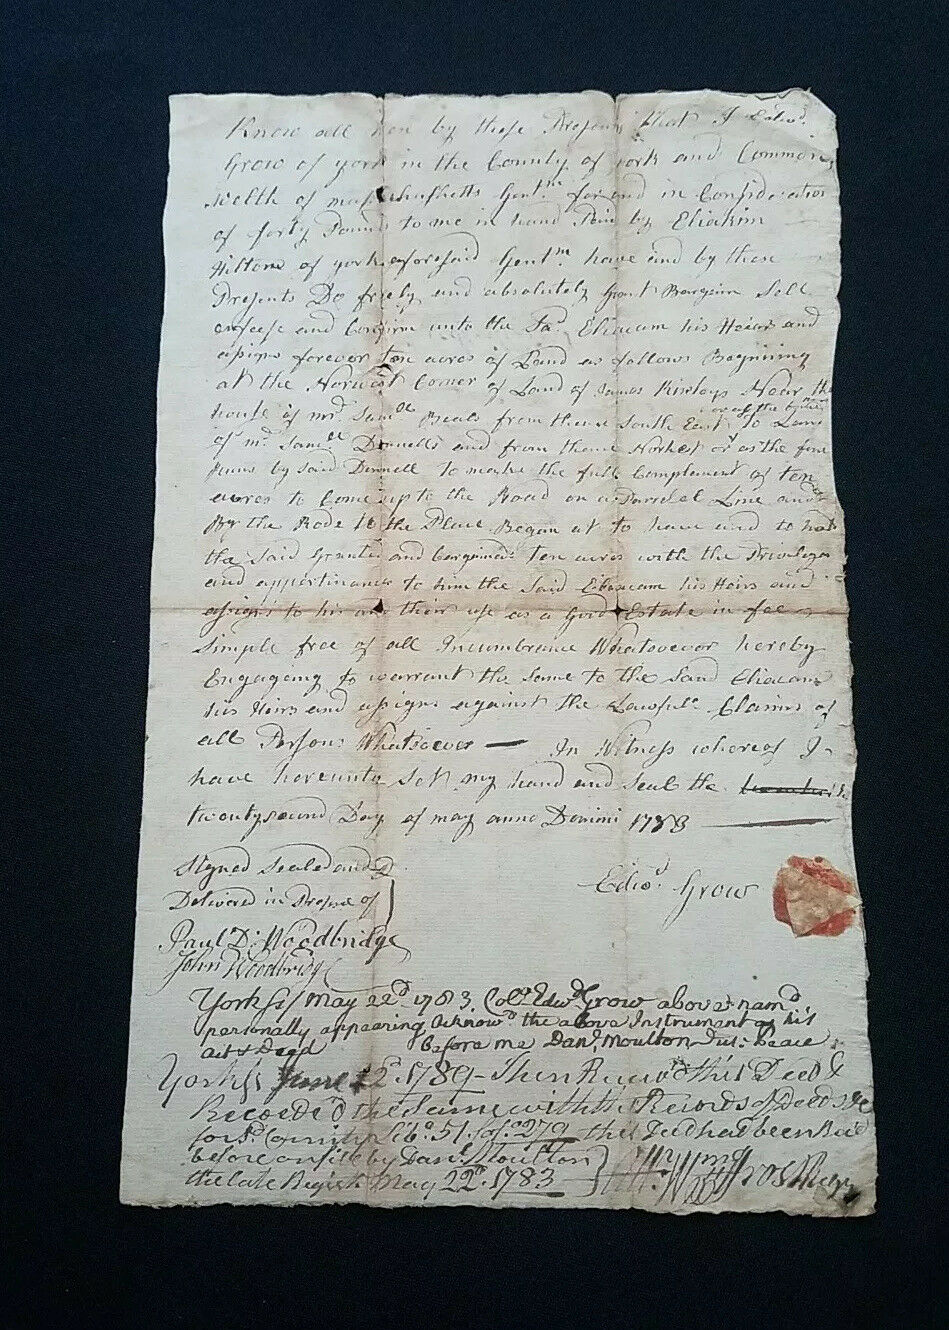 Know all men by these Presents That I Edwd.
Grow of york in the County of york and Common
welth of massachusetts Gentm. for and in Consideration
of forty Pounds to me in hand Paid by Eliakim
Hilton of york aforesaid Gentm. have and by these
Presents Do freely and absolutely Grant Bargain Sell
enfeefe and Confirm unto the Sd. Eliacam his Heirs and
assigns forever ten acres of Land as follows Begining
at the Norwest Corner of Land of James Near the
house of mr. Samll Beals from thence South East to Land
of mr. Samll Donnells and from thence as the fence
Runs by Said Donnell to make the full Complement of ten
acres to Come up to the Road on a Parralel Line and
By the Rode to the Place Began at to have and to hold
the Said Granted and bargained ten acres with the Privileges
and appertinances to him the Said Eliacam his Heirs and
assigns to his and their use as a Good Estate in fee
Simple free of all Incumbrance Whatsoever hereby
Engageing to warrant the Same to the Said Eliacam
his Heirs and assigns against the Lawfull Claims of
all Persons Whatsoever — In Witness whereof I
have hereunto Set my hand and Seal the
twentysecond Day of may anno Domini 1783
Signed Sealed and
Delivered in Presence of
Edwd. Grow
Paul D. Woodbridge
John Woodbridge
York ss/ May 22d. 1783. Colo. Edwd Grow above namd
personally appearing Acknowd. the above Instrument as his
act & Deed before me Danl. Moulton Jus: Peace
York ss June 22d. 1789 - Then Recd this Deed &
Recorded the Same with the Records of Deeds &c
for Sd. County Libo. 51. folo. 279 this Deed had been Recd
before on file by Danl. Moulton
the late Register May 22d. 1783